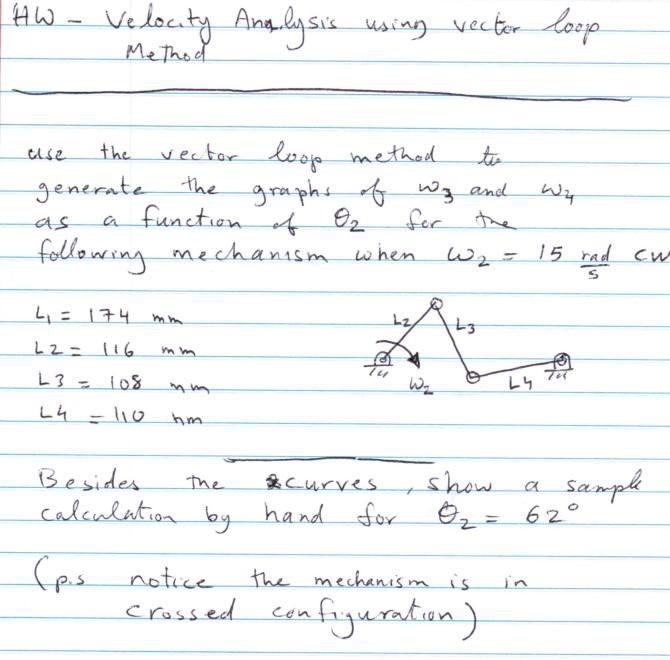 HW - Velocity Analysis using vector loop
Method
use the vector loop method to
generate the graphs of w3 and w4
as a function of θ2 for the
following mechanism when ω2 = 15 rad/s cw
L1 = 174 mm
L2 = 116 mm
L3 = 108 mm
L4 = 110 mm
L2
L3
ω2
L4
Besides the curves, show a sample
calculation by hand for θ2 = 62°
(p.s notice the mechanism is in
crossed configuration)